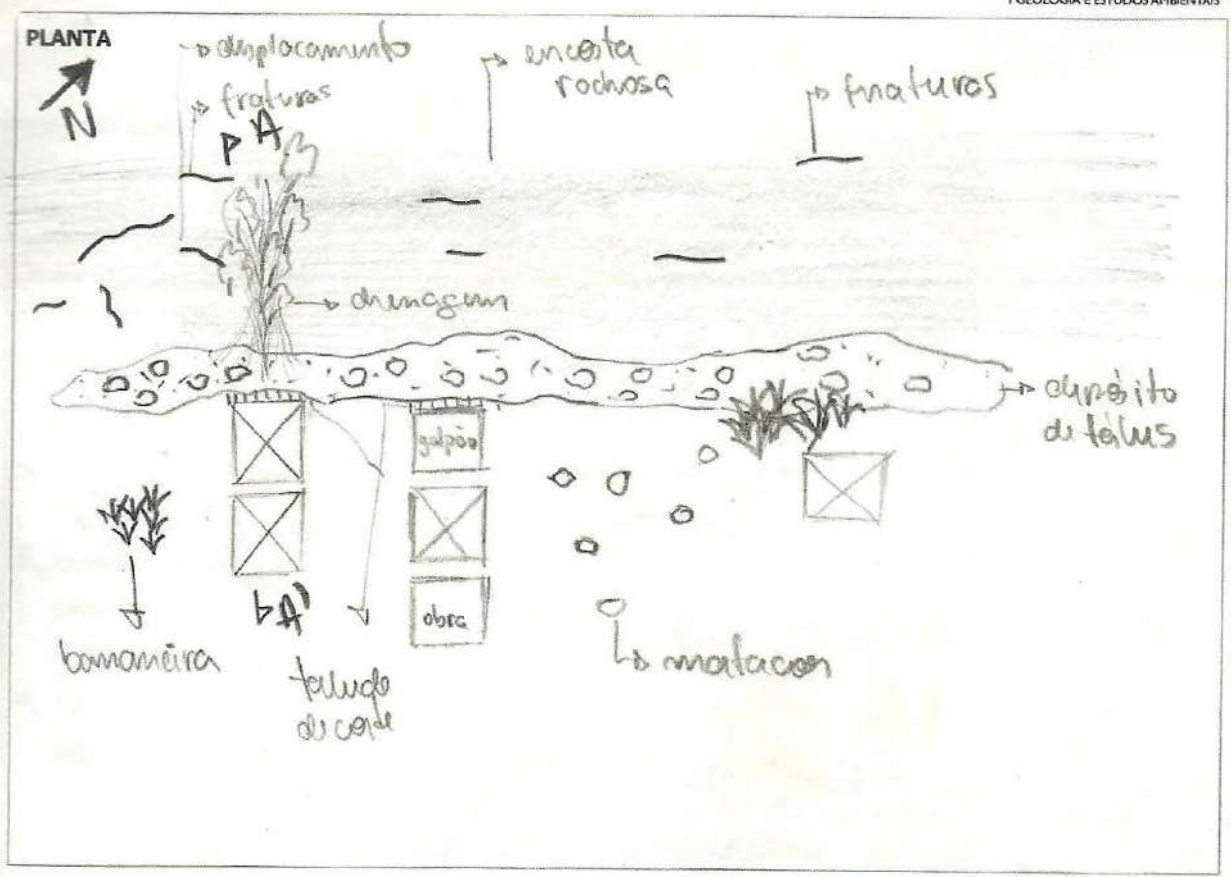 GEOLOGIA E ESTUDOS AMBIENTAIS
PLANTA
N
displacamento
fraturas
encosta
rochosa
fraturas
A
drenagem
depósito
de tálus
galpão
obra
A'
bananeira
talude
de corte
matacões